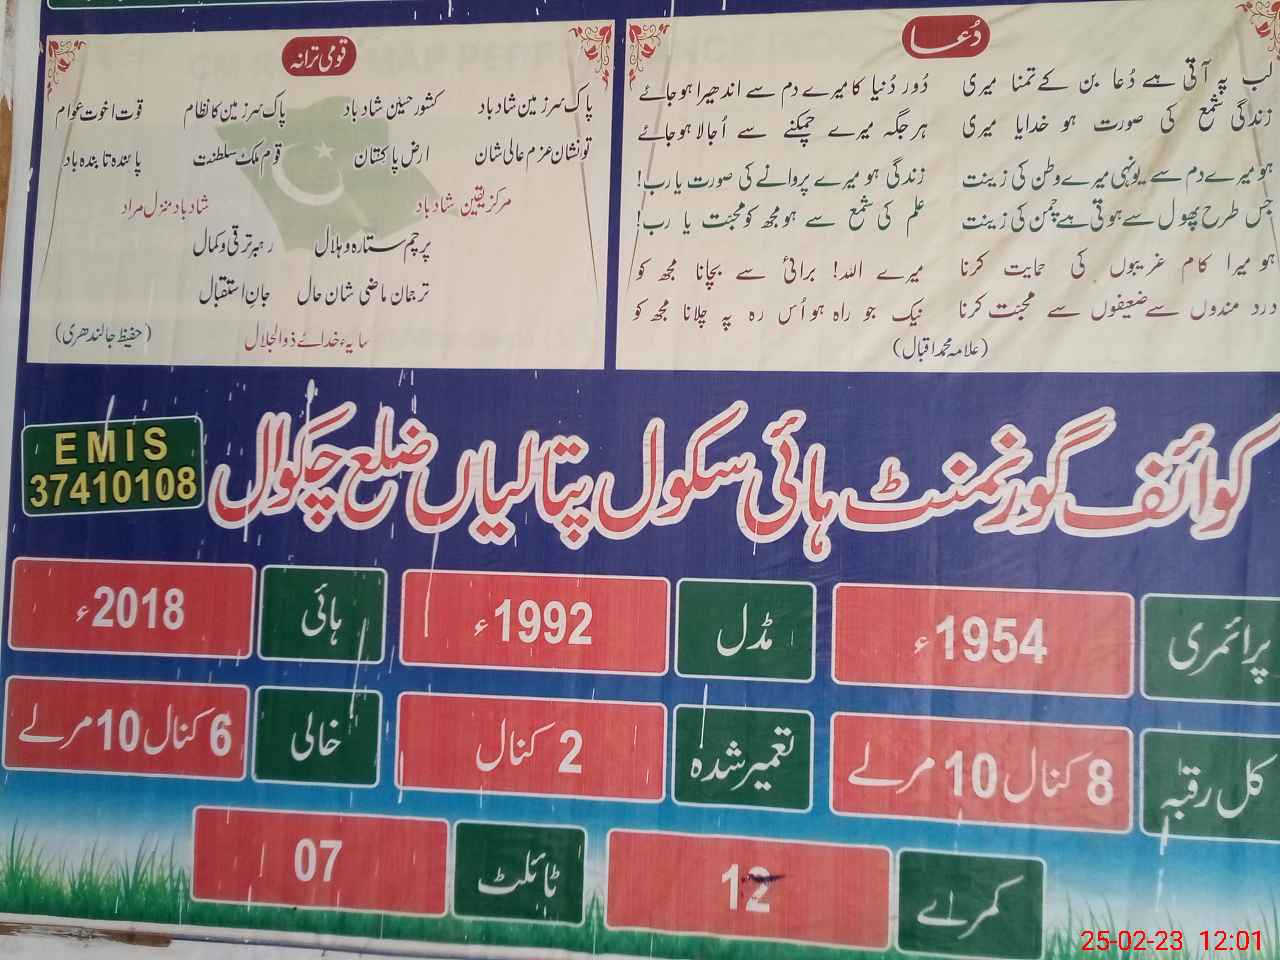 دُعا
لب پہ آتی ہے دُعا بن کے تمنا میری
دُور دُنیا کا میرے دم سے اندھیرا ہو جائے
زندگی شمع کی صورت ہو خدایا میری
ہر جگہ میرے چمکنے سے اُجالا ہو جائے
ہو میرے دم سے یونہی میرے وطن کی زینت
زندگی ہو میرے پروانے کی صورت یا رب!
جس طرح پھول سے ہوتی ہے چمن کی زینت
علم کی شمع سے ہو مجھ کو محبّت یا رب!
ہو میرا کام غریبوں کی حمایت کرنا
میرے اللہ! برائی سے بچانا مجھ کو
درد مندوں سے ضعیفوں سے محبّت کرنا
نیک جو راہ ہو اُس رہ پہ چلانا مجھ کو
(علامہ محمد اقبال)
قومی ترانہ
پاک سرزمین شاد باد کشور حسین شاد باد پاک سرزمین کا نظام قوت اخوت عوام
تو نشان عزم عالی شان ارض پاکستان قوم ملک سلطنت پائندہ تابندہ باد
مرکز یقین شاد باد شاد باد منزل مراد
پرچم ستارہ و ہلال رہبر ترقی و کمال
ترجمان ماضی شان حال جان استقبال
سایہء خدائے ذوالجلال
(حفیظ جالندھری)
کوائف گورنمنٹ ہائی سکول پتالیاں ضلع چکوال
EMIS
37410108
پرائمری 1954ء مڈل 1992ء ہائی 2018ء
کل رقبہ 8 کنال 10 مرلے تعمیر شدہ 2 کنال خالی 6 کنال 10 مرلے
کمرے 12 ٹائلٹ 07
25-02-23 12:01